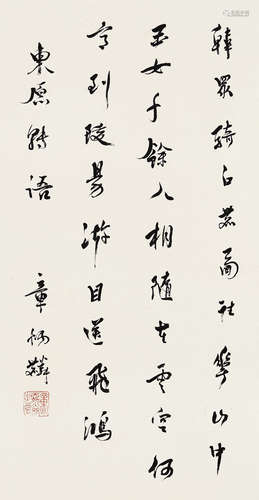 韓眾騎白鹿西往華山中
玉女千餘人相隨在雲空何
意到陵陽游目送飛鴻
東原轉語
章炳麟